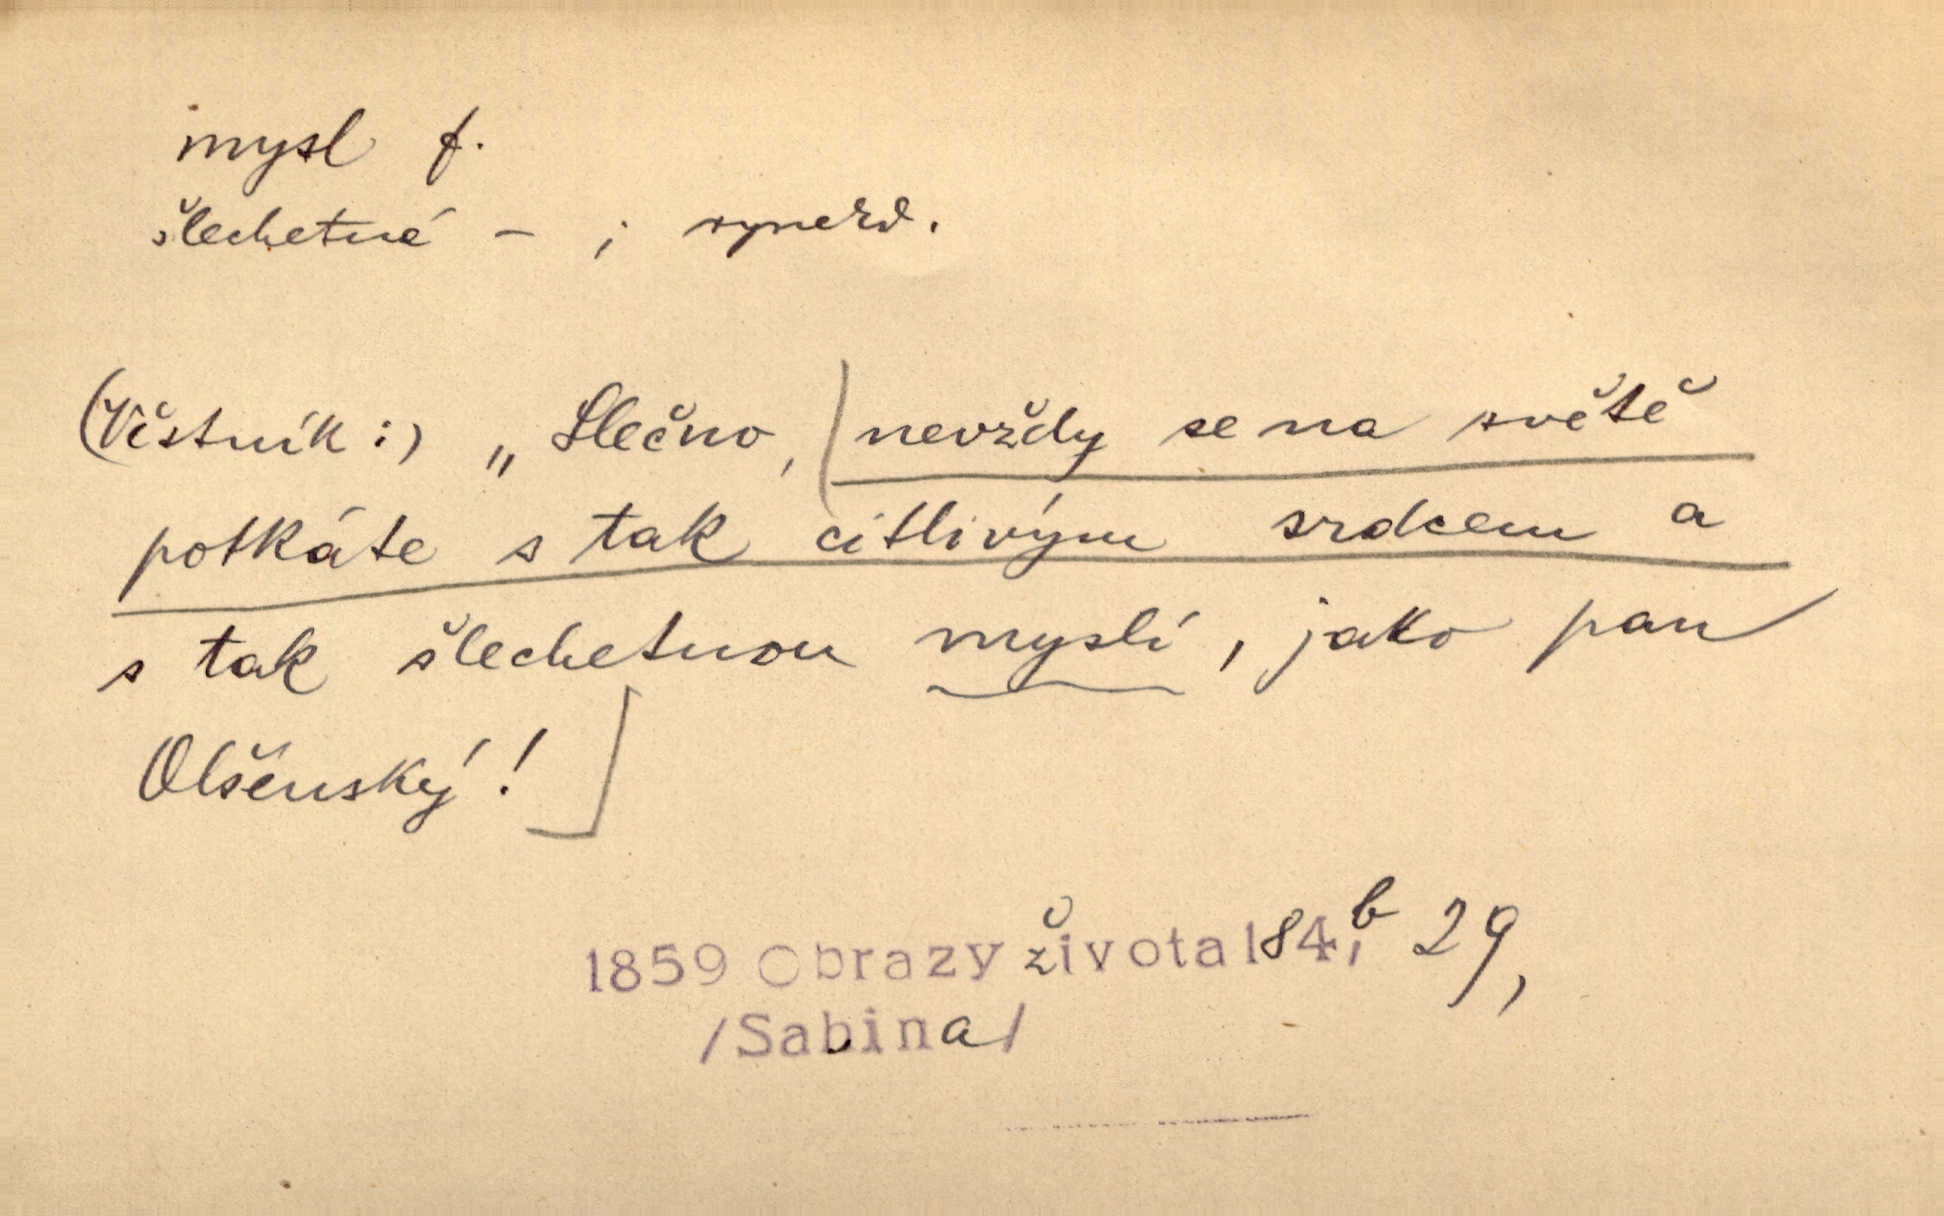 mysl f.
šlechetné - ;
(Věstník:) „Slečno, nevždy se na světě
potkáte s tak citlivým srdcem a
s tak šlechetnou myslí, jako pan
Olšenský!
1859 Obrazy života 184,b 29,
/Sabina/